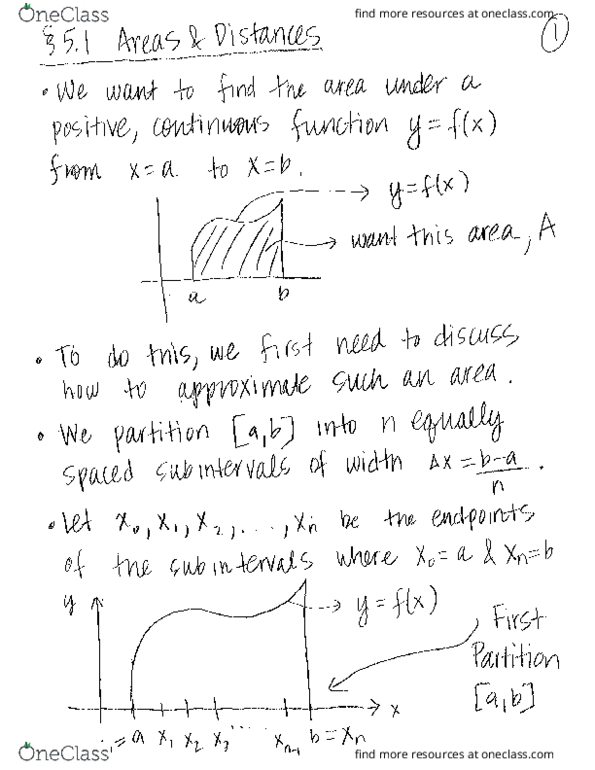 OneClass
find more resources at oneclass.com
§5.1 Areas & Distances
1
• We want to find the area under a
positive, continuous function y = f(x)
from x = a to x = b.
y = f(x)
want this area, A
a b
• To do this, we first need to discuss
how to approximate such an area.
• We partition [a,b] into n equally
spaced subintervals of width Δx = b-a
n .
• Let x₀, x₁, x₂, ..., xₙ be the endpoints
of the subintervals where x₀ = a & xₙ = b
y
y = f(x)
First
Partition
[a,b]
x
= a x₁ x₂ x₃ ... xₙ₋₁ b = xₙ
OneClass
find more resources at oneclass.com